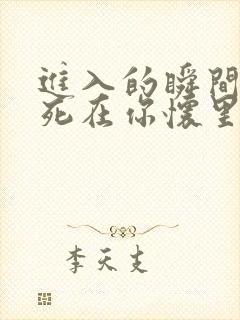 進入的瞬間
死在你懷里
李天支